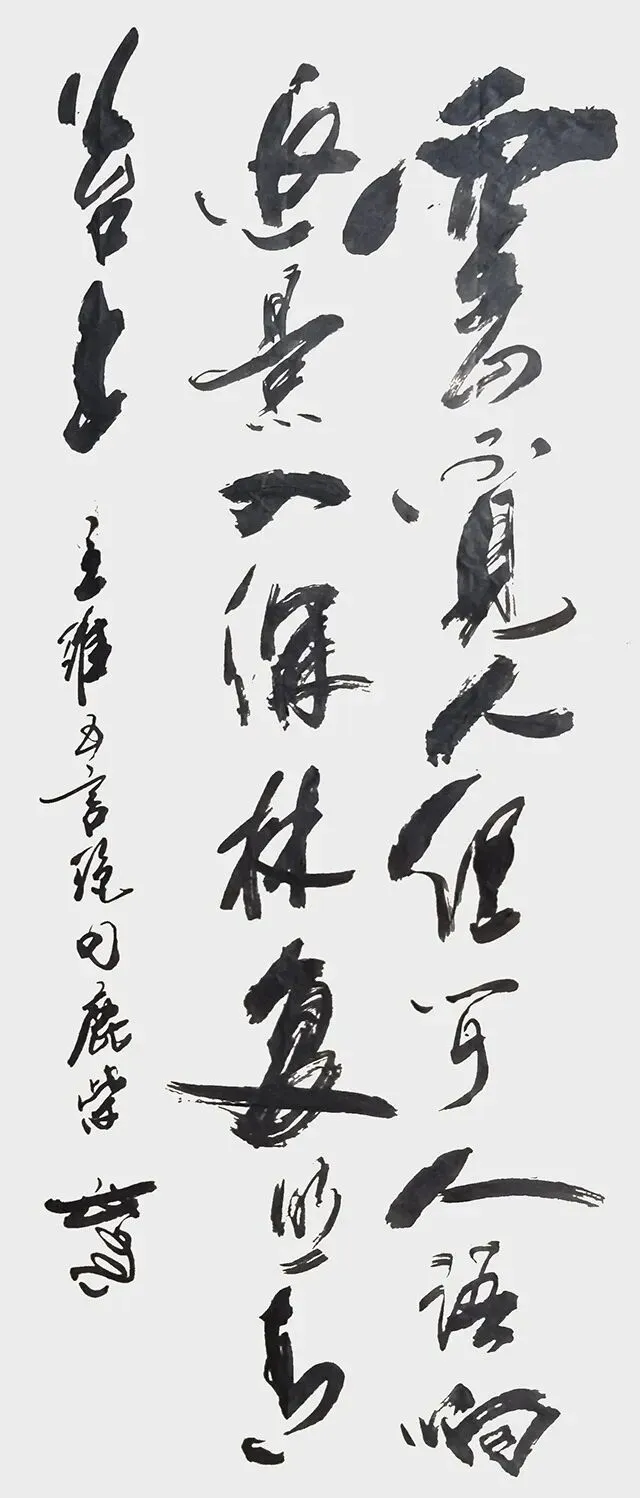 空山不見人但聞人語响
返景入深林复照青
苔上
王維五言絕句鹿柴